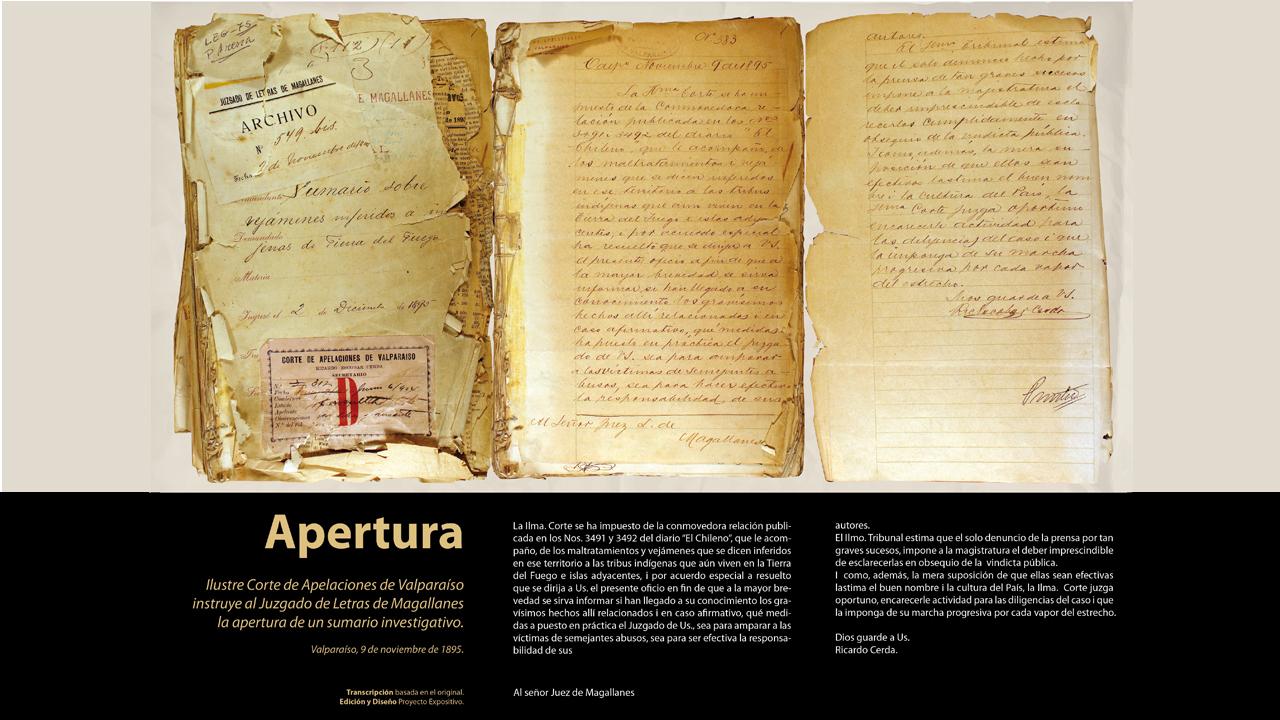 LEG-75
P. Arena
JUZGADO DE LETRAS DE MAGALLANES
E MAGALLANES
ARCHIVO
N° 549. bis.
Fecha 2 de Noviembre de
Sumario sobre
vejámenes inferidos a in
Demandado
jenas de Tierra del Fuego
Materia
Ingresó el 2 de Diciembre de 1895
CORTE DE APELACIONES DE VALPARAISO
RICARDO ESCOBAR CERDA
SECRETARIO
N° 383
Noviembre 9 de 1895
La Iltma. Corte se ha im
puesto de la conmovedora re-
lación publicada en los Nos.
3491 i 3492 del diario "El
Chileno", que le acompaño, de
los maltratamientos i vejá
menes que se dicen inferidos
en ese territorio a las tribus
indígenas que aun viven en la
Tierra del Fuego e islas adya
centes, i por acuerdo especial
ha resuelto que se dirija a VS.
el presente oficio a fin de que a
la mayor brevedad se sirva
informar si han llegado a su
conocimiento los gravísimos
hechos allí relacionados i en
caso afirmativo, qué medidas
ha puesto en práctica el Juzga
do de VS. sea para amparar
a las víctimas de semejantes a
busos, sea para hacer efectiva
la responsabilidad de sus
Al Señor Juez L. de
Magallanes
autores.
El Iltmo. Tribunal estima
que el solo denuncio hecho por
la prensa de tan graves sucesos
impone a la majistratura el
deber imprescindible de escla
recerlos cumplidamente en
obsequio de la vindicta pública.
I como, además, la mera su-
posición de que ellos sean
efectivos lastima el buen nom
bre i la cultura del País, la
Iltma. Corte juzga oportuno
encarecerle actividad para
las diligencias del caso i que
la imponga de su marcha
progresiva por cada vapor
del estrecho.
Dios guarde a VS.
Apertura
Ilustre Corte de Apelaciones de Valparaíso
instruye al Juzgado de Letras de Magallanes
la apertura de un sumario investigativo.
Valparaíso, 9 de noviembre de 1895.
Transcripción basada en el original.
Edición y Diseño Proyecto Expositivo.
La Ilma. Corte se ha impuesto de la conmovedora relación publi-
cada en los Nos. 3491 y 3492 del diario "El Chileno", que le acom-
paño, de los maltratamientos y vejámenes que se dicen inferidos
en ese territorio a las tribus indígenas que aún viven en la Tierra
del Fuego e islas adyacentes, i por acuerdo especial a resuelto
que se dirija a Us. el presente oficio en fin de que a la mayor bre-
vedad se sirva informar si han llegado a su conocimiento los gra-
vísimos hechos allí relacionados i en caso afirmativo, qué medi-
das a puesto en práctica el Juzgado de Us., sea para amparar a las
víctimas de semejantes abusos, sea para ser efectiva la responsa-
bilidad de sus
Al señor Juez de Magallanes
autores.
El Ilmo. Tribunal estima que el solo denuncio de la prensa por tan
graves sucesos, impone a la magistratura el deber imprescindible
de esclarecerlas en obsequio de la  vindicta pública.
I  como, además, la mera suposición de que ellas sean efectivas
lastima el buen nombre i la cultura del País, la Ilma.  Corte juzga
oportuno, encarecerle actividad para las diligencias del caso i que
la imponga de su marcha progresiva por cada vapor del estrecho.
Dios guarde a Us.
Ricardo Cerda.